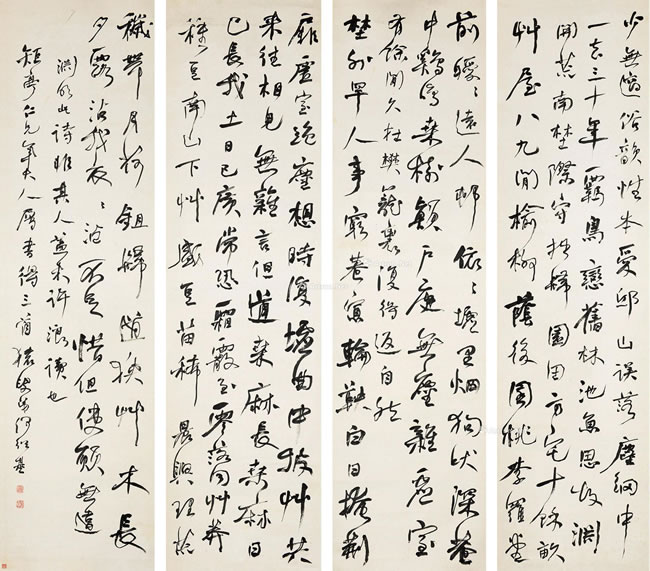 少無適俗韻性本愛邱山誤落塵網中
一去三十年羈鳥戀舊林池魚思故淵
開荒南埜際守拙歸園田方宅十餘畝
艸屋八九間榆柳蔭後園桃李羅堂
前曖〻遠人邨依〻墟里烟狗吠深巷
中鷄鳴桑樹顛戶庭無塵雜虛室
有餘閒久在樊籠裏復得返自然
埜外罕人事窮巷寡輪鞅白日掩荆
扉虛室絕塵想時復墟曲中披艸共
來往相見無雜言但道桒麻長桒麻日
已長我土日已廣常恐霜霰至零落同艸莽
種豆南山下艸盛豆苗稀晨興理荒
穢帶月荷鉏歸道狹艸木長
夕露沾我衣〻沾不足惜但使願無違
淵明此詩非其人蓋未許浪讀也
仁兄年大人屬書得三首猨叟弟何紹基